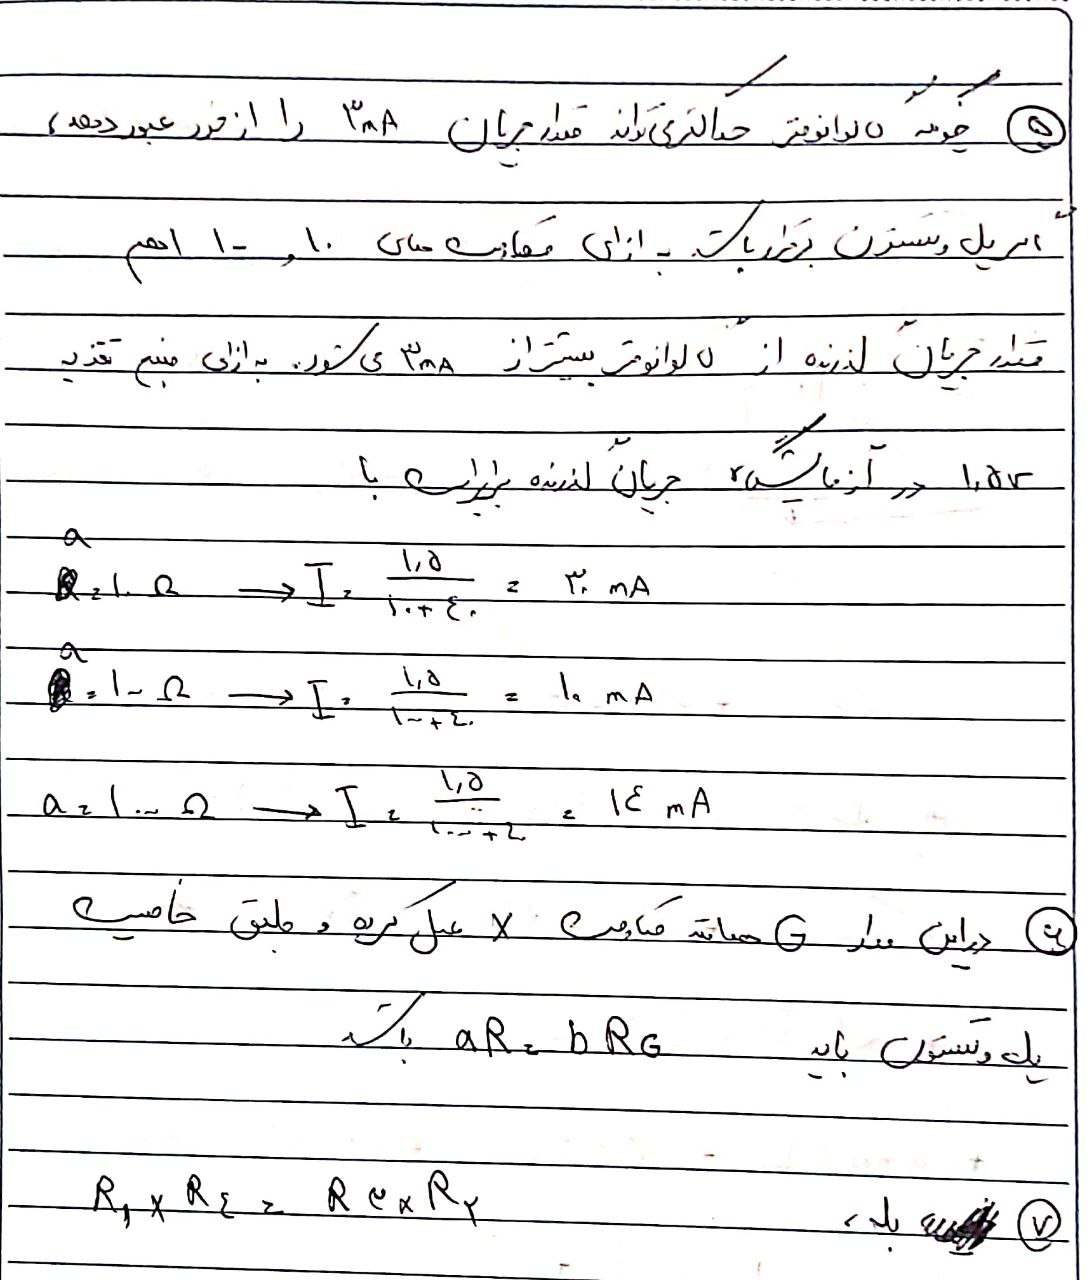 ۵ چون که گالوانومتر حداکثر می‌تواند مقدار جریان ۳mA را از خود عبور دهد،
اگر پل وتستون برقرار باشد. به ازای مقاومت های ۱۰ و ۱۰۰ اهم
مقدار جریان گذرنده از گالوانومتر بیشتر از ۳mA می شود. به ازای منبع تغذیه
۱,۵v در آزمایشگاه جریان گذرنده برابر است با
a = ۱۰ Ω → I = ۱,۵ / ۱۰+٤۰ = ۳۰ mA
a = ۱۰۰ Ω → I = ۱,۵ / ۱۰۰+٤۰ = ۱۰ mA
a = ۱۰۰۰ Ω → I = ۱,۵ / ۱۰۰۰+٤۰ = ۱٤ mA
۶ در این مدار G همانند مقاومت X عمل کرده و طبق خاصیت
پل وتستون باید aR = bRG باشد
۷ بله، R₁ × R٤ = R۳ × R۲